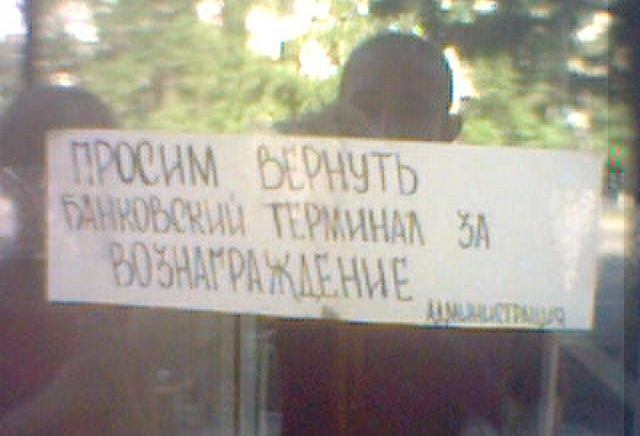 ПРОСИМ ВЕРНУТЬ
БАНКОВСКИЙ ТЕРМИНАЛ ЗА
ВОЗНАГРАЖДЕНИЕ
АДМИНИСТРАЦИЯ